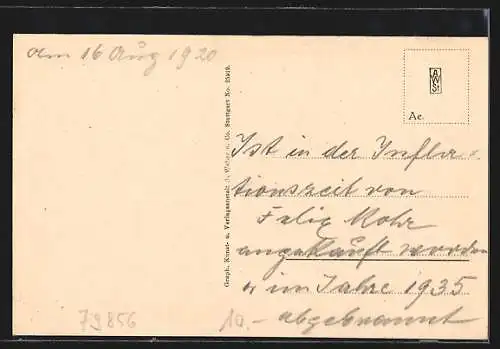 am 16 Aug 1920
AWSt
Ac.
Graph. Kunst- u. Verlagsanstalt A. Weber u. Co. Stuttgart No.
Ist in der Infla-
tionszeit von
Felix Mohr
angekauft worden
im Jahre 1935
abgebrannt
79856
10.-